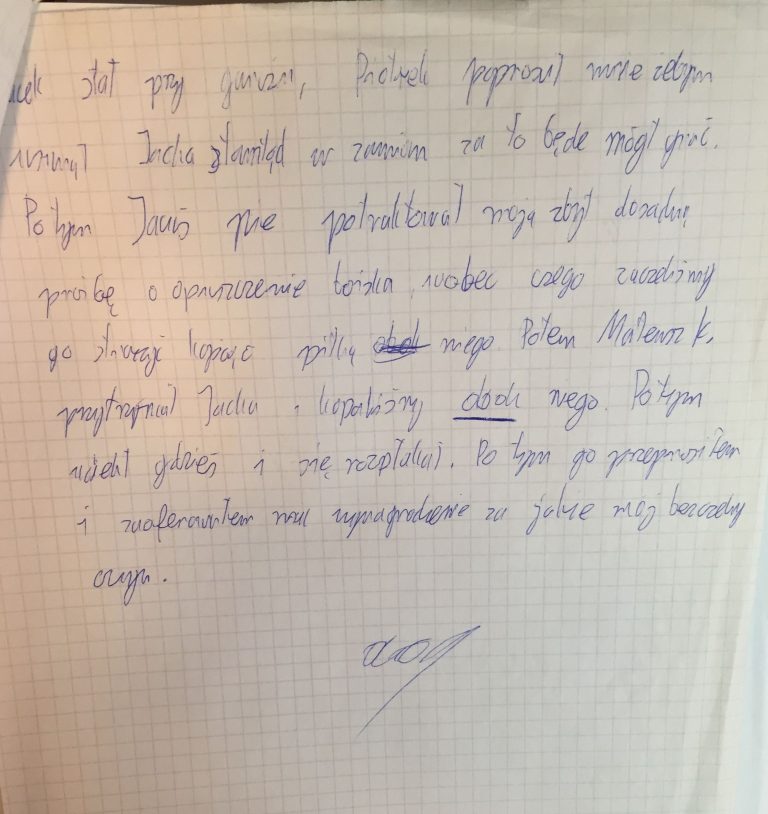 stał przy Piotrek poprosił mnie żebym
usunął Jacka stamtąd w zamian za to będę mógł grać.
Po tym Jacuś nie potraktował moją zbyt dosadną
prośbę o opuszczenie boiska, wobec czego zaczeliśmy
go straszyć kopiąc piłką niego. Potem Mateusz k.
przytrzymał Jacka i kopaliśmy obok niego. Po tym
uciekł gdzieś i się rozpłakał. Po tym go przeprosiłem
i zaoferowałem mu wynagrodzenie za jakże mój bezczelny
czyn.